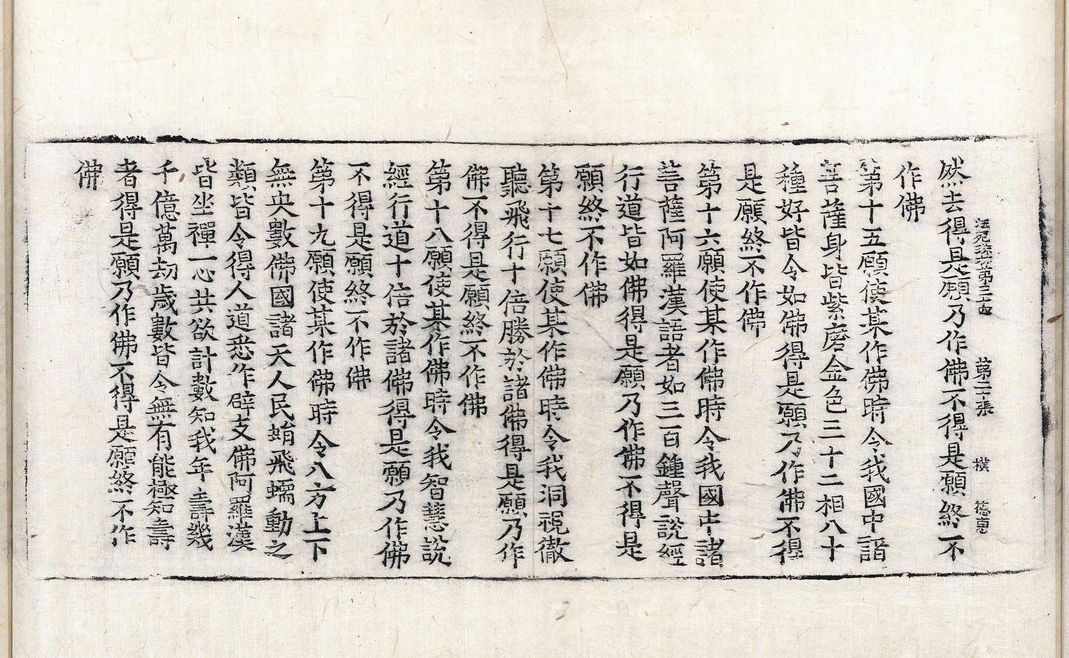 然去得是願乃作佛不得是願終不
作佛
第十五願使某作佛時令我國中諸
菩薩身皆紫磨金色三十二相八十
種好皆令如佛得是願乃作佛不得
是願終不作佛
第十六願使某作佛時令我國中諸
菩薩阿羅漢語者如三百鍾聲說經
行道皆如佛得是願乃作佛不得是
願終不作佛
第十七願使某作佛時令我洞視徹
聽飛行十倍勝於諸佛得是願乃作
佛不得是願終不作佛
第十八願使某作佛時令我智慧說
經行道十倍於諸佛得是願乃作佛
不得是願終不作佛
第十九願使某作佛時令八方上下
無央數佛國諸天人民蜎飛蠕動之
類皆令得人道悉作辟支佛阿羅漢
皆坐禪一心共欲計數知我年壽幾
千億萬劫歲數皆令無有能極知壽
者得是願乃作佛不得是願終不作
佛